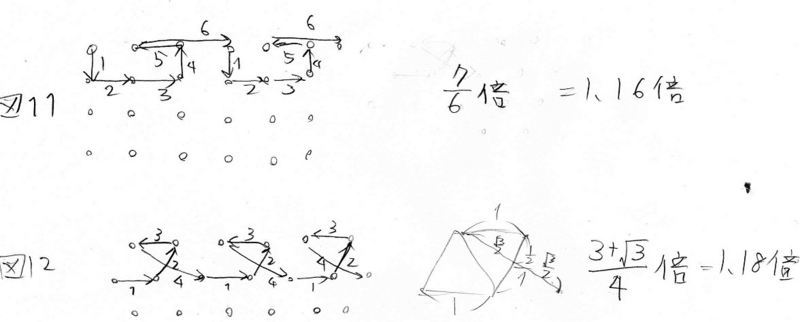 6 6
1 5 4 1 5 4
2 3 2 3
図11
7/6倍 =1.16倍
3 3 3
2 2 2
4 4 4
1 1 1
図12
1
√3/2 1/2 √3/2
1
1
(3+√3)/4倍=1.18倍